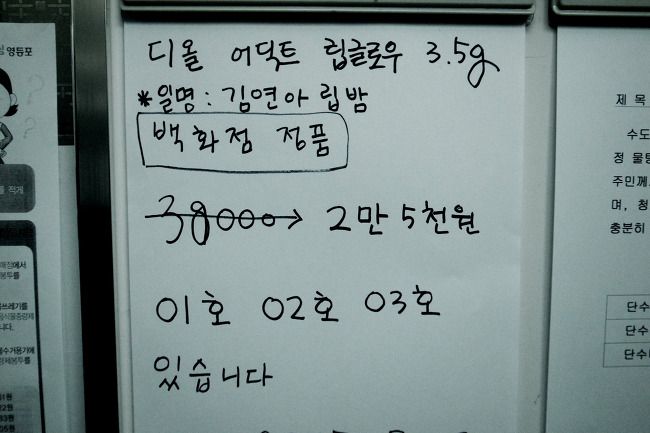 디올 어딕트 립글로우 3.5g
*일명 : 김연아 립밤
백화점 정품
38000 → 2만 5천원
01호 02호 03호
있습니다
영등포
를 적게
매점에서
봉투를
쓰레기를
음식물종량제
니다.
수거용기에
량제봉투를
제 목
수도
정 물탱
주민께
며, 청
충분히
단수
단수
단수